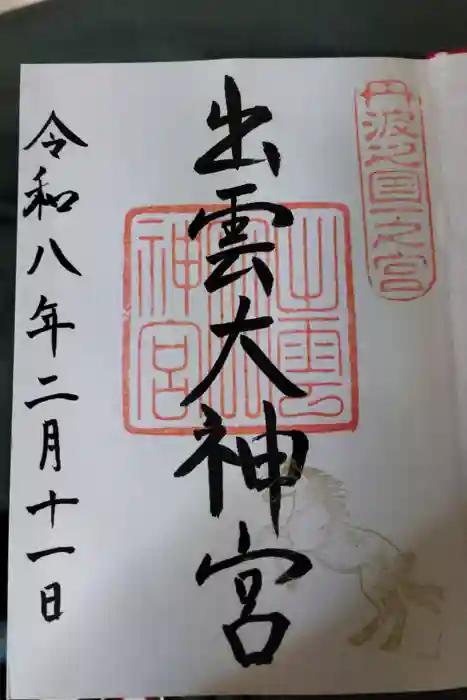 丹波國一之宮
出雲大神宮
出雲
神宮
令和八年二月十一日